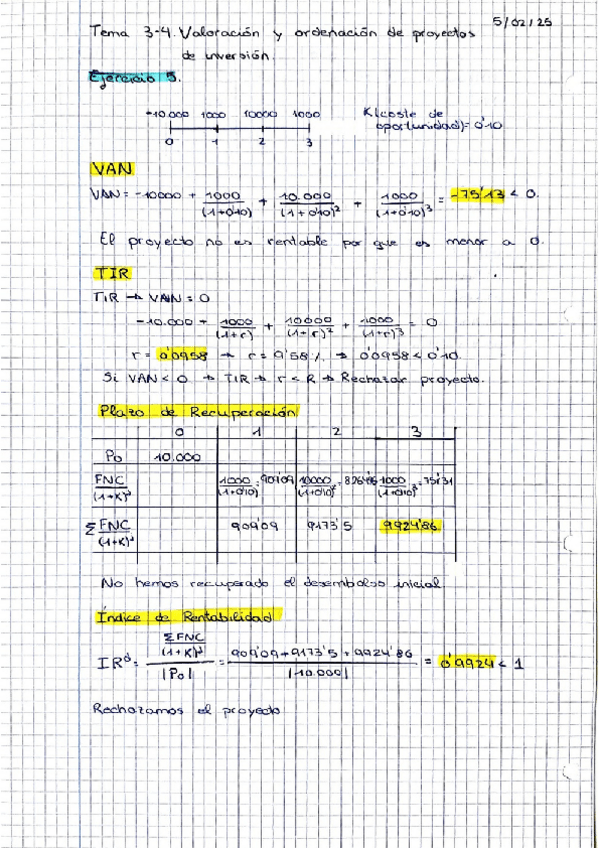 5/02/25
Tema 3-4. Valoración y ordenación de proyectos
de inversión.
Ejercicio 5.
-10.000 1000 10000 1000 K(coste de
oportunidad)= 0'10
0 1 2 3
VAN
VAN = -10000 + 1000/(1+0'10) + 10.000/(1+0'10)² + 1000/(1+0'10)³ = -75'13 < 0.
El proyecto no es rentable por que es menor a 0.
TIR
TIR → VAN = 0
-10.000 + 1000/(1+r) + 10000/(1+r)² + 1000/(1+r)³ = 0
r = 0'0958 → r = 9'58% → 0'0958 < 0'10.
Si VAN < 0 → TIR → r < R → Rechazar proyecto.
Plazo de Recuperación
0 1 2 3
Po 10.000
FNC/(1+K)^j 1000/(1+0'10) = 909'09 10000/(1+0'10)² = 8264'46 1000/(1+0'10)³ = 751'31
Σ FNC/(1+K)^j 909'09 9173'5 9924'86
No hemos recuperado el desembolso inicial
Índice de Rentabilidad
IRᵈ = Σ FNC/(1+K)^j / |Po| = 909'09+9173'5+9924'86 / |-10.000| = 0'9924 < 1
Rechazamos el proyecto